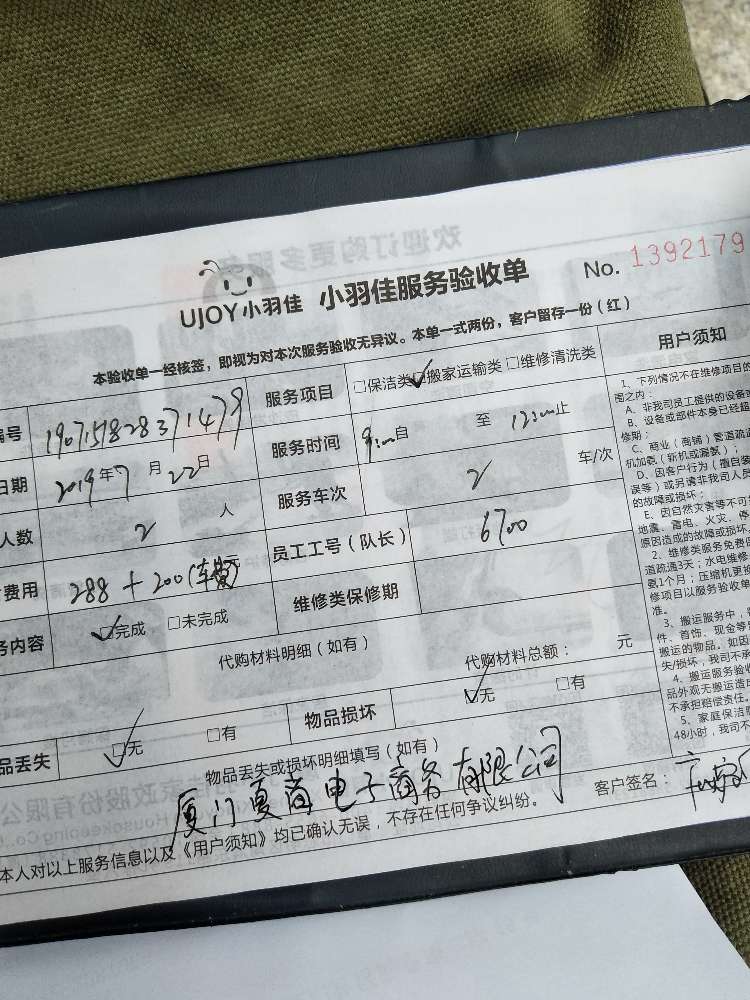 UJOY小羽佳 小羽佳服务验收单 No. 1392179
本验收单一经核签，即视为对本次服务验收无异议。本单一式两份，客户留存一份（红）
编号 190715828371479 服务项目 □保洁类 ☑搬家运输类 □维修清洗类
日期 2019年7月22日 服务时间 自 至 止
人数 2 人 服务车次 2 车/次
费用 288 + 200(车费) 员工工号（队长） 6700
务内容 ☑完成 □未完成 维修类保修期
代购材料明细（如有） 代购材料总额： 元
品丢失 ☑无 □有 物品损坏 ☑无 □有
物品丢失或损坏明细填写（如有）
厦门夏商电子商务有限公司
客户签名：
本人对以上服务信息以及《用户须知》均已确认无误，不存在任何争议纠纷。
用户须知
1、下列情况不在维修项目的
围之内：
A、非我司员工提供的设备或
B、设备或部件本身已经超
修期；
C、商业（商铺）管道疏
机加氨（新机或漏氨）；
D、因客户行为（擅自装
误等）或另请非我司人员
的故障或损坏；
E、因自然灾害等不可
地震、雷电、火灾、停
原因造成的故障或损坏
2、维修类服务免费保
道疏通3天；水电维修
氨1个月；压缩机更换
修项目以服务验收单
准。
3、搬运服务中，
件、首饰、现金等
搬运的物品。如因
失/损坏，我司不承
4、搬运服务验
品外观无搬运造成
不承担赔偿责任。
5、家庭保洁
48小时，我司不